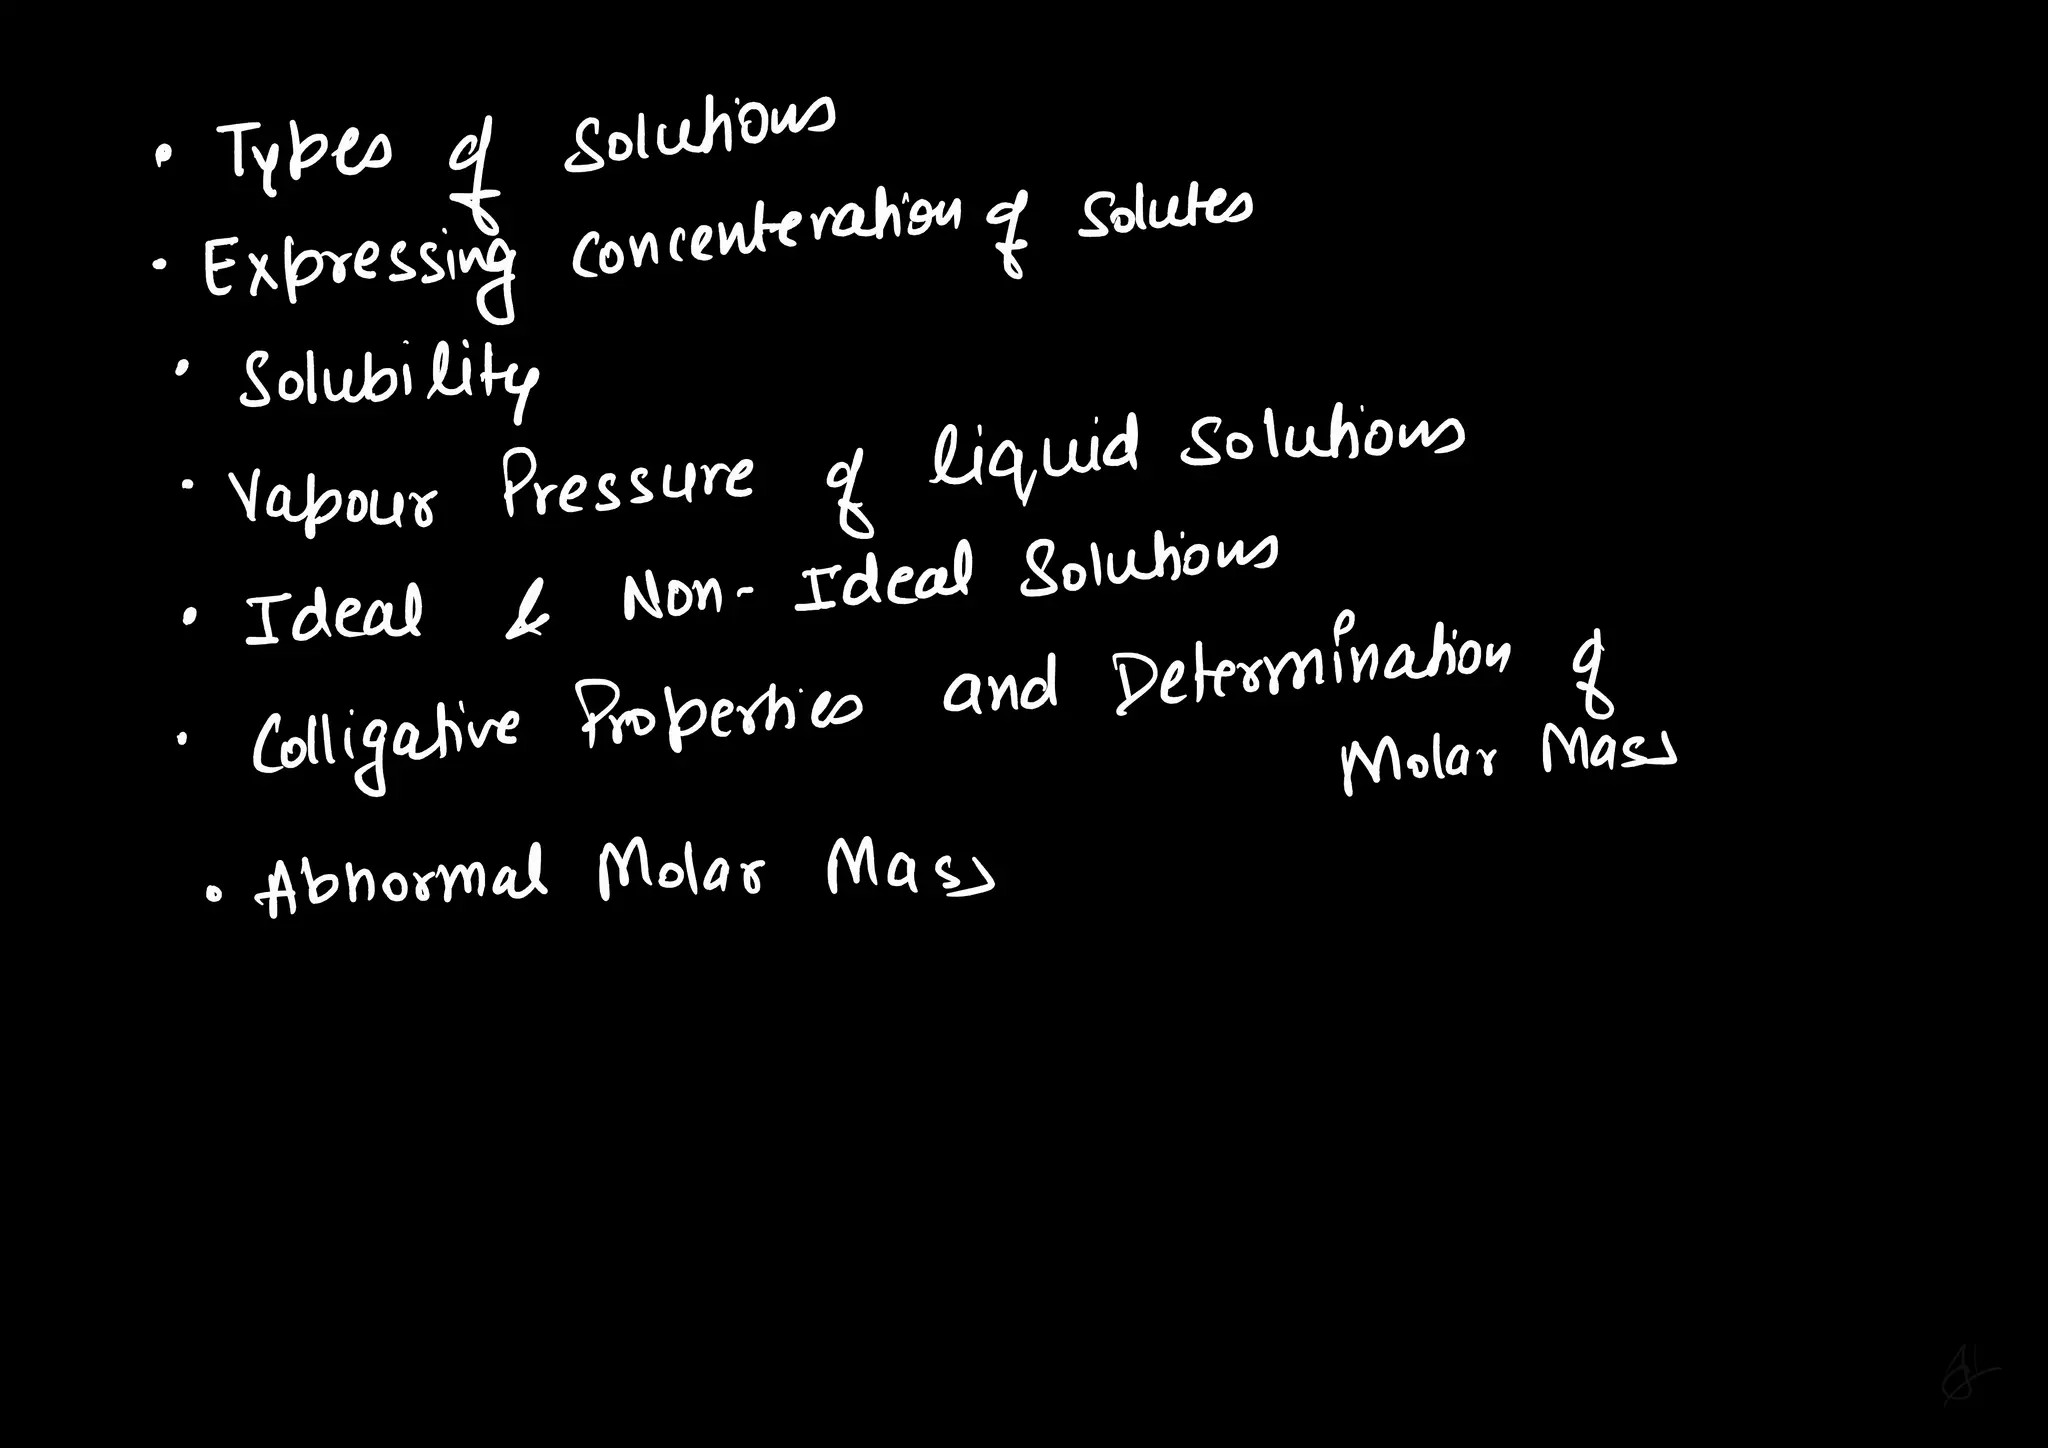 • Types of Solutions
• Expressing Concenteration of Solutes
• Solubility
• Vapour Pressure of liquid Solutions
• Ideal & Non-Ideal Solutions
• Colligative Properties and Determination of
Molar Mass
• Abnormal Molar Mass